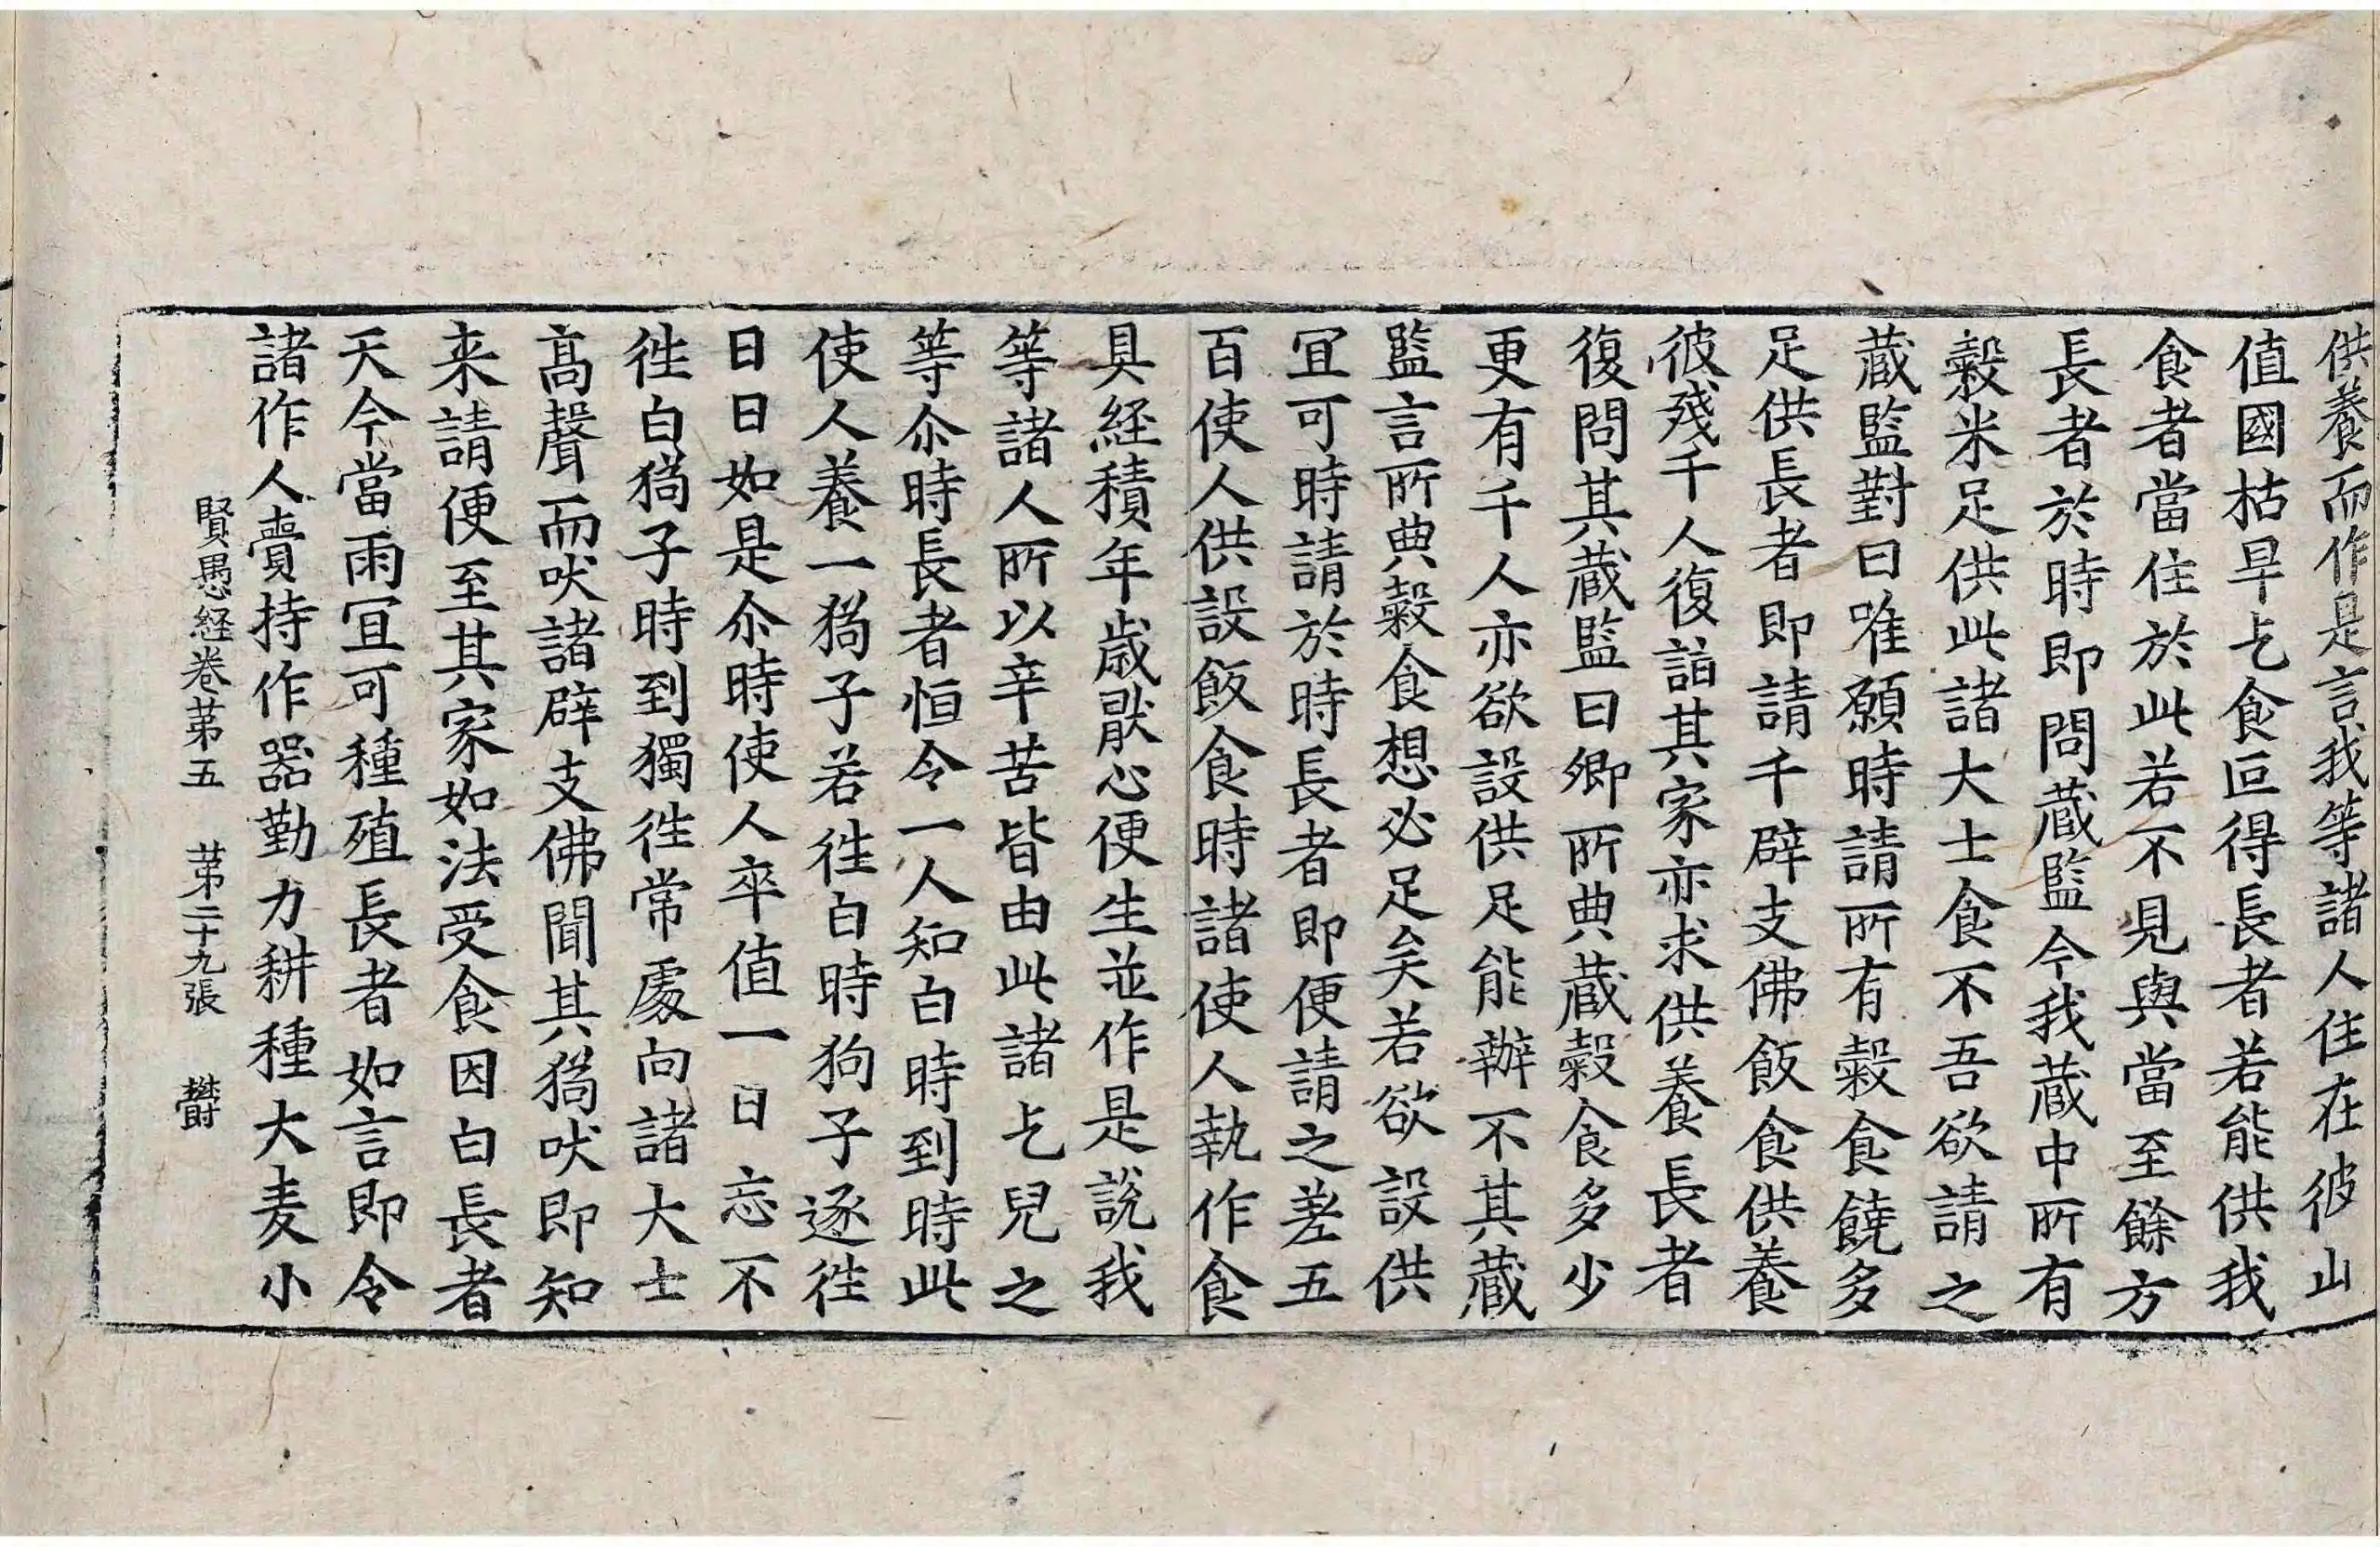 供養而作是言我等諸人住在彼山
值國枯旱乞食叵得長者若能供我
食者當住於此若不見與當至餘方
長者於時即問蔵監今我蔵中所有
穀米足供此諸大士食不吾欲請之
蔵監對曰唯願時請所有穀食饒多
足供長者即請千辟支佛飯食供養
彼殘千人復詣其家亦求供養長者
復問其蔵監曰卿所典蔵穀食多少
更有千人亦欲設供足能辦不其蔵
監言所典穀食想必足矣若欲設供
冝可時請於時長者即便請之差五
百使人供設飯食時諸使人執作食
具経積年歳猒心便生並作是說我
等諸人所以辛苦皆由此諸乞兒之
等尒時長者恒令一人知白時到時此
使人養一猗子若徃白時狗子逐徃
日日如是尒時使人卒值一日忘不
徃白猗子時到獨徃常處向諸大士
高聲而吠諸辟支佛聞其猗吠即知
来請便至其家如法受食因白長者
天今當雨冝可種殖長者如言即令
諸作人賷持作器勤力耕種大麦小
賢愚経巻苐五 苐二十九張 欎